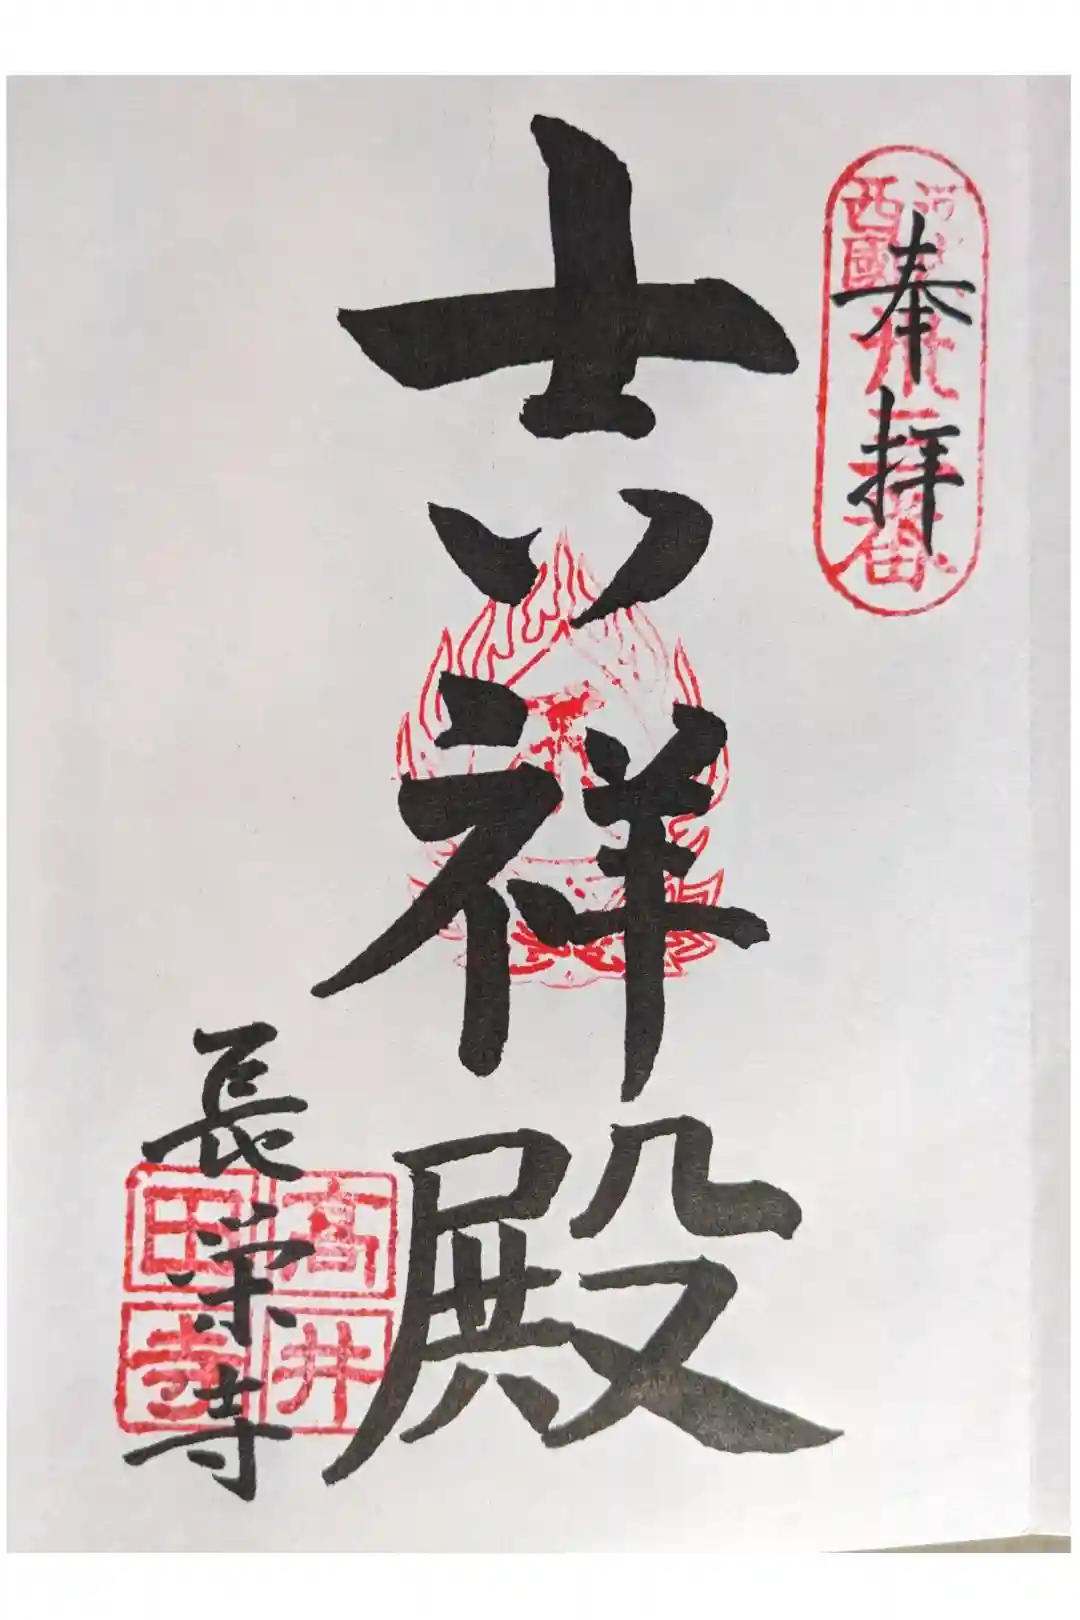 奉拝
西國
番
吉祥殿
長栄寺
高井
田寺